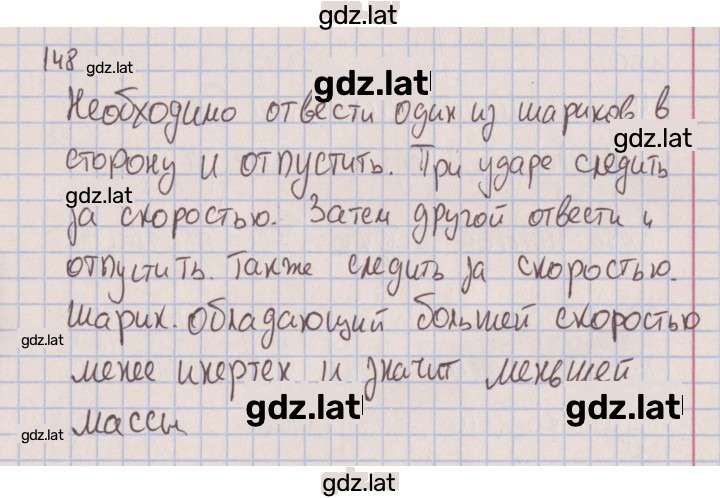 gdz.lat
148
gdz.lat
gdz.lat
Необходимо отвести один из шариков в
gdz.lat
сторону и отпустить. При ударе следить
gdz.lat
за скоростью. Затем другой отвести и
отпустить. Также следить за скоростью.
Шарик. обладающий большей скоростью
gdz.lat
менее инертен и значит меньшей
gdz.lat
gdz.lat
gdz.lat
массы
gdz.lat